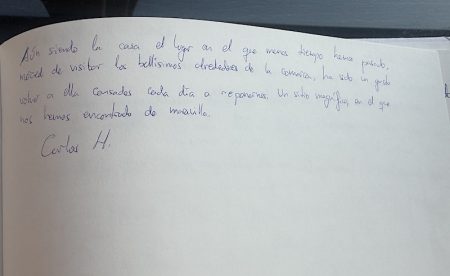 Aún siendo la casa el lugar en el que menos tiempo hemos pasado,
merced de visitar los bellísimos alrededores de la comarca, ha sido un gusto
volver a ella cansados cada día a reponernos. Un sitio magnífico, en el que
nos hemos encontrado de maravilla.
Carlos H.